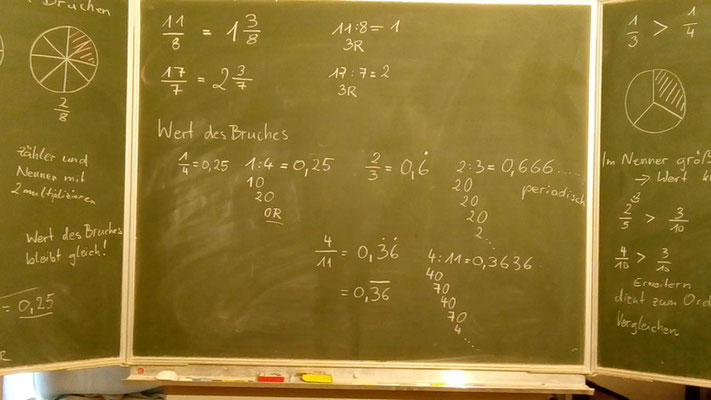 Brüchen
2/8
Zähler und
Nenner mit
2 multiplizieren
Wert des Bruches
bleibt gleich!
= 0,25
R
11/8 = 1 3/8
11:8 = 1
3R
17/7 = 2 3/7
17:7 = 2
3R
Wert des Bruches
1/4 = 0,25
1:4 = 0,25
10
20
0R
2/3 = 0,6̇
2:3 = 0,666.....
periodisch
20
20
20
2...
4/11 = 0,3̇6̇
= 0,3̅6̅
4:11 = 0,3636...
40
70
40
70
4
.....
1/3 > 1/4
Im Nenner größ
→ Wert
2/5 > 3/10
4/10 > 3/10
Erweitern
dient zum Ord
Vergleichen